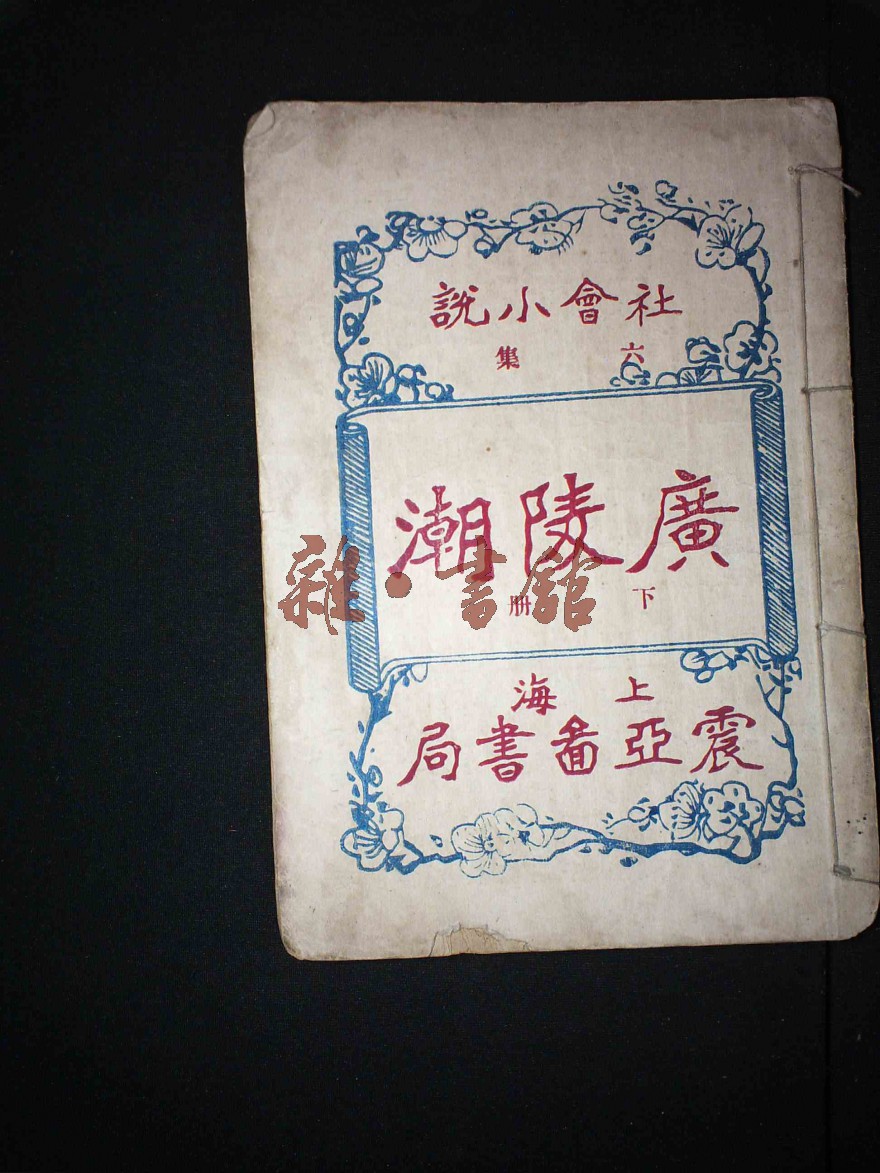 社會小說
六集
廣陵潮
下册
上海
震亞啚書局
雜·書館